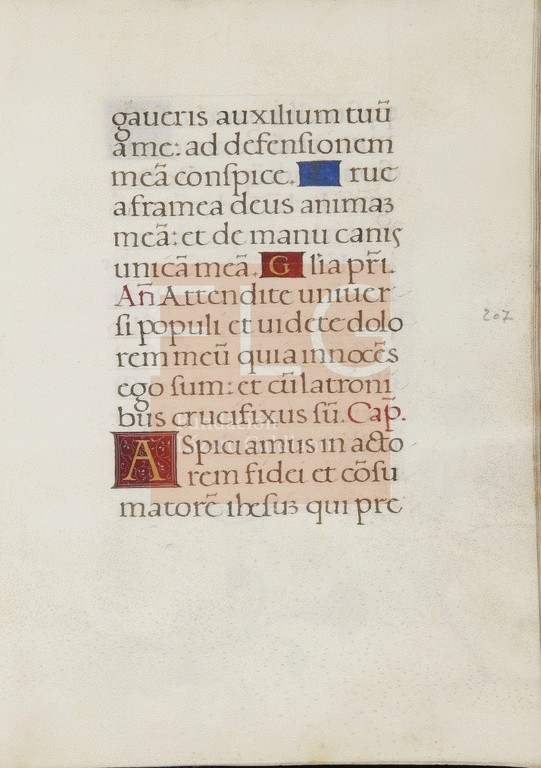 gaueris auxilium tuū
a me: ad defensionem
meā conspice. E rue
a framea deus animaʒ
meā: et de manu canis
unicā meā. G lia pr̄i.
An̄ Attendite uniuer
si populi et uidete dolo
rem meū quia innocēs
ego sum: et cū latroni
bus crucifixus sū. Cap̄.
ASpiciamus in acto
rem fidei et cōsu
matorē ihesuʒ qui pre
207
FLG
Fundación